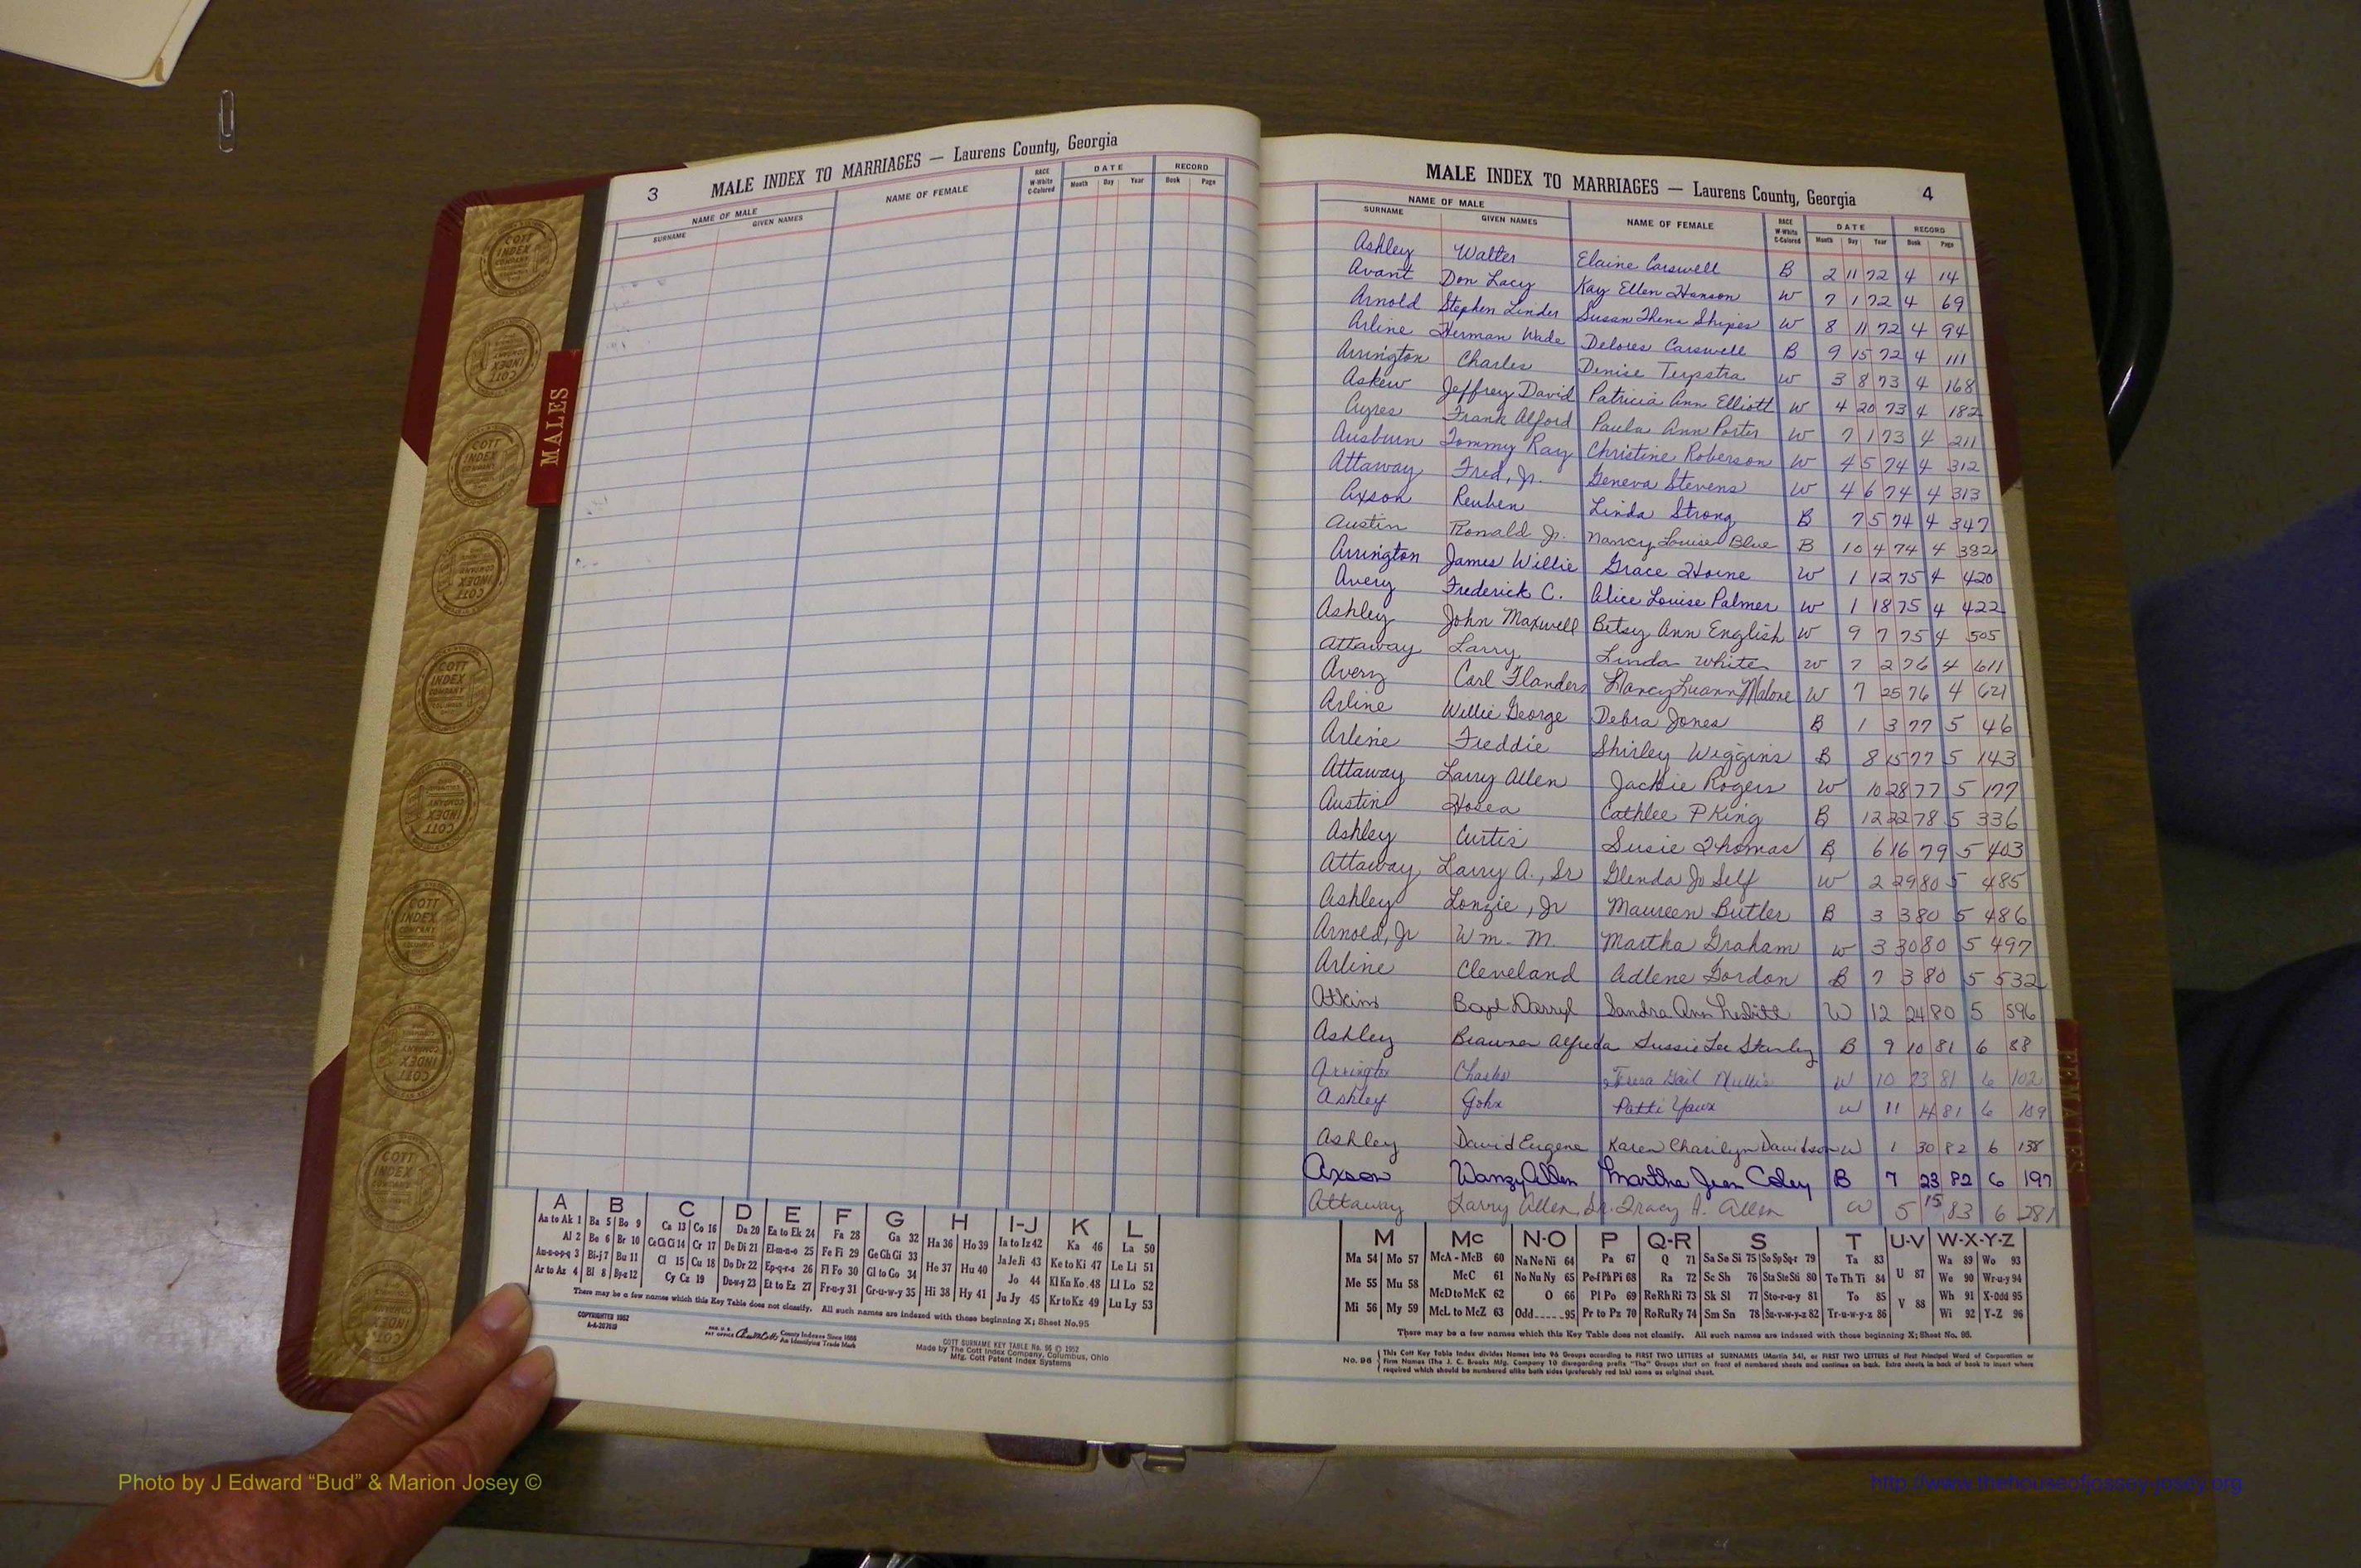 3 MALE INDEX TO MARRIAGES — Laurens County, Georgia
NAME OF MALE NAME OF FEMALE RACE W-White C-Colored DATE RECORD
SURNAME GIVEN NAMES Month Day Year Book Page
MALES
COTT INDEX COMPANY
MALE INDEX TO MARRIAGES — Laurens County, Georgia 4
NAME OF MALE NAME OF FEMALE RACE W-White C-Colored DATE RECORD
SURNAME GIVEN NAMES Month Day Year Book Page
Ashley Walter Elaine Carswell B 2 11 72 4 14
Avant Don Lacy Kay Ellen Hanson W 7 1 72 4 69
Arnold Stephen Linder Susan Shipes W 8 11 72 4 94
Arline Herman Wade Delores Carswell B 9 15 72 4 111
Arrington Charles Denise Terpstra W 3 8 73 4 168
Askew Jeffrey David Patricia Ann Elliott W 4 20 73 4 182
Ayres Frank Alford Paula Ann Porter W 7 1 73 4 211
Ausburn Tommy Ray Christine Roberson W 4 5 74 4 312
Attaway Fred, Jr. Geneva Stevens W 4 6 74 4 313
Axson Reuben Linda Strong B 7 5 74 4 347
Austin Ronald Jr. Nancy Louise Blue B 10 4 74 4 382
Arrington James Willie Grace Horne W 1 12 75 4 420
Avery Frederick C. Alice Louise Palmer W 1 18 75 4 422
Ashley John Maxwell Betsy Ann English W 9 7 75 4 505
Attaway Larry Linda White W 7 2 76 4 611
Avery Carl Flanders Nancy Luann Malone W 7 25 76 4 621
Arline Willie George Debra Jones B 1 3 77 5 46
Arline Freddie Shirley Wiggins B 8 15 77 5 143
Attaway Larry Allen Jackie Rogers W 10 28 77 5 177
Austin Hosea Cathlee P King B 12 22 78 5 336
Ashley Curtis Susie Thomas B 6 16 79 5 403
Attaway Larry A., Sr Glenda Jo Self W 2 29 80 5 485
Ashley Lonzie, Jr Maureen Butler B 3 3 80 5 486
Arnold, Jr Wm. M. Martha Graham W 3 30 80 5 497
Arline Cleveland Adlene Gordon B 7 3 80 5 532
Atkins Boyd Darryl Sandra Ann W 12 24 80 5 596
Ashley Alfreda Sussie Lee Stanley B 9 10 81 6 88
Arrington Charles Teresa Gail Mullis W 10 23 81 6 102
Ashley John Patti W 11 14 81 6 109
Ashley David Eugene Karen Charilyn Davidson W 1 30 82 6 138
Axson Wanzy Allen Martha Jean Coley B 7 23 82 6 197
Attaway Larry Allen, Sr. Tracy A. Allen W 5 15 83 6 281
A B C D E F G H I-J K L
Aa to Ak 1 Ba 5 Bo 9 Ca 13 Co 16 Da 20 Ea to Ek 24 Fa 28 Ga 32 Ha 36 Ho 39 Ia to Iz 42 Ka 46 La 50
Al 2 Be 6 Br 10 Ce Ch Ci 14 Cr 17 De Di 21 El-m-n-o 25 Fe Fi 29 Ge Gh Gi 33 He 37 Hu 40 Ja Je Ji 43 Ke to Ki 47 Le Li 51
Am-n-o-p-q 3 Bi-j 7 Bu 11 Cl 15 Cu 18 Do Dr 22 Ep-q-r-s 26 Fl Fo 30 Gl to Go 34 Hi 38 Hy 41 Jo 44 Kl Kn Ko 48 Ll Lo 52
Ar to Az 4 Bl 8 By-z 12 Cy Cz 19 Du-w-y 23 Et to Ez 27 Fr-u-y 31 Gr-u-w-y 35 Ju Jy 45 Kr to Kz 49 Lu Ly 53
There may be a few names which this Key Table does not classify. All such names are indexed with those beginning X; Sheet No.95
COPYRIGHTED 1952
REG. U.S. PAT OFFICE County Indexes Since 1888 An Identifying Trade Mark
COTT SURNAME KEY TABLE No. 96 © 1952
Made by The Cott Index Company, Columbus, Ohio
Mfg. Cott Patent Index Systems
M Mc N-O P Q-R S T U-V W-X-Y-Z
Ma 54 Mo 57 McA - McB 60 Na Ne Ni 64 Pa 67 Q 71 Sa Se Si 75 So Sp Sq-r 79 Ta 83 U 87 Wa 89 Wo 93
Me 55 Mu 58 McC 61 No Nu Ny 65 Pe-f Ph Pi 68 Ra 72 Sc Sh 76 Sta Ste Sti 80 Te Th Ti 84 We 90 Wr-u-y 94
McD to McK 62 O 66 Pl Po 69 Re Rh Ri 73 Sk Sl 77 Sto-r-u-y 81 To 85 V 88 Wh 91 X-Odd 95
Mi 56 My 59 McL to McZ 63 Odd.....95 Pr to Pz 70 Ro Ru Ry 74 Sm Sn 78 Su-v-w-y-z 82 Tr-u-w-y-z 86 Wi 92 Y-Z 96
There may be a few names which this Key Table does not classify. All such names are indexed with those beginning X; Sheet No. 95.
No. 96 This Cott Key Table Index divides Names into 96 Groups according to FIRST TWO LETTERS of SURNAMES (Martin 54), or FIRST TWO LETTERS of First Principal Word of Corporation or
Firm Names (The J. C. Brooks Mfg. Company 10 disregarding prefix "The") Groups start on front of numbered sheets and continue on back. Extra sheets in back of book to insert where
required which should be numbered alike both sides (preferably red ink) same as original sheet.
FEMALES
Photo by J Edward “Bud” & Marion Josey ©
http://www.thehouseofjossey-josey.org